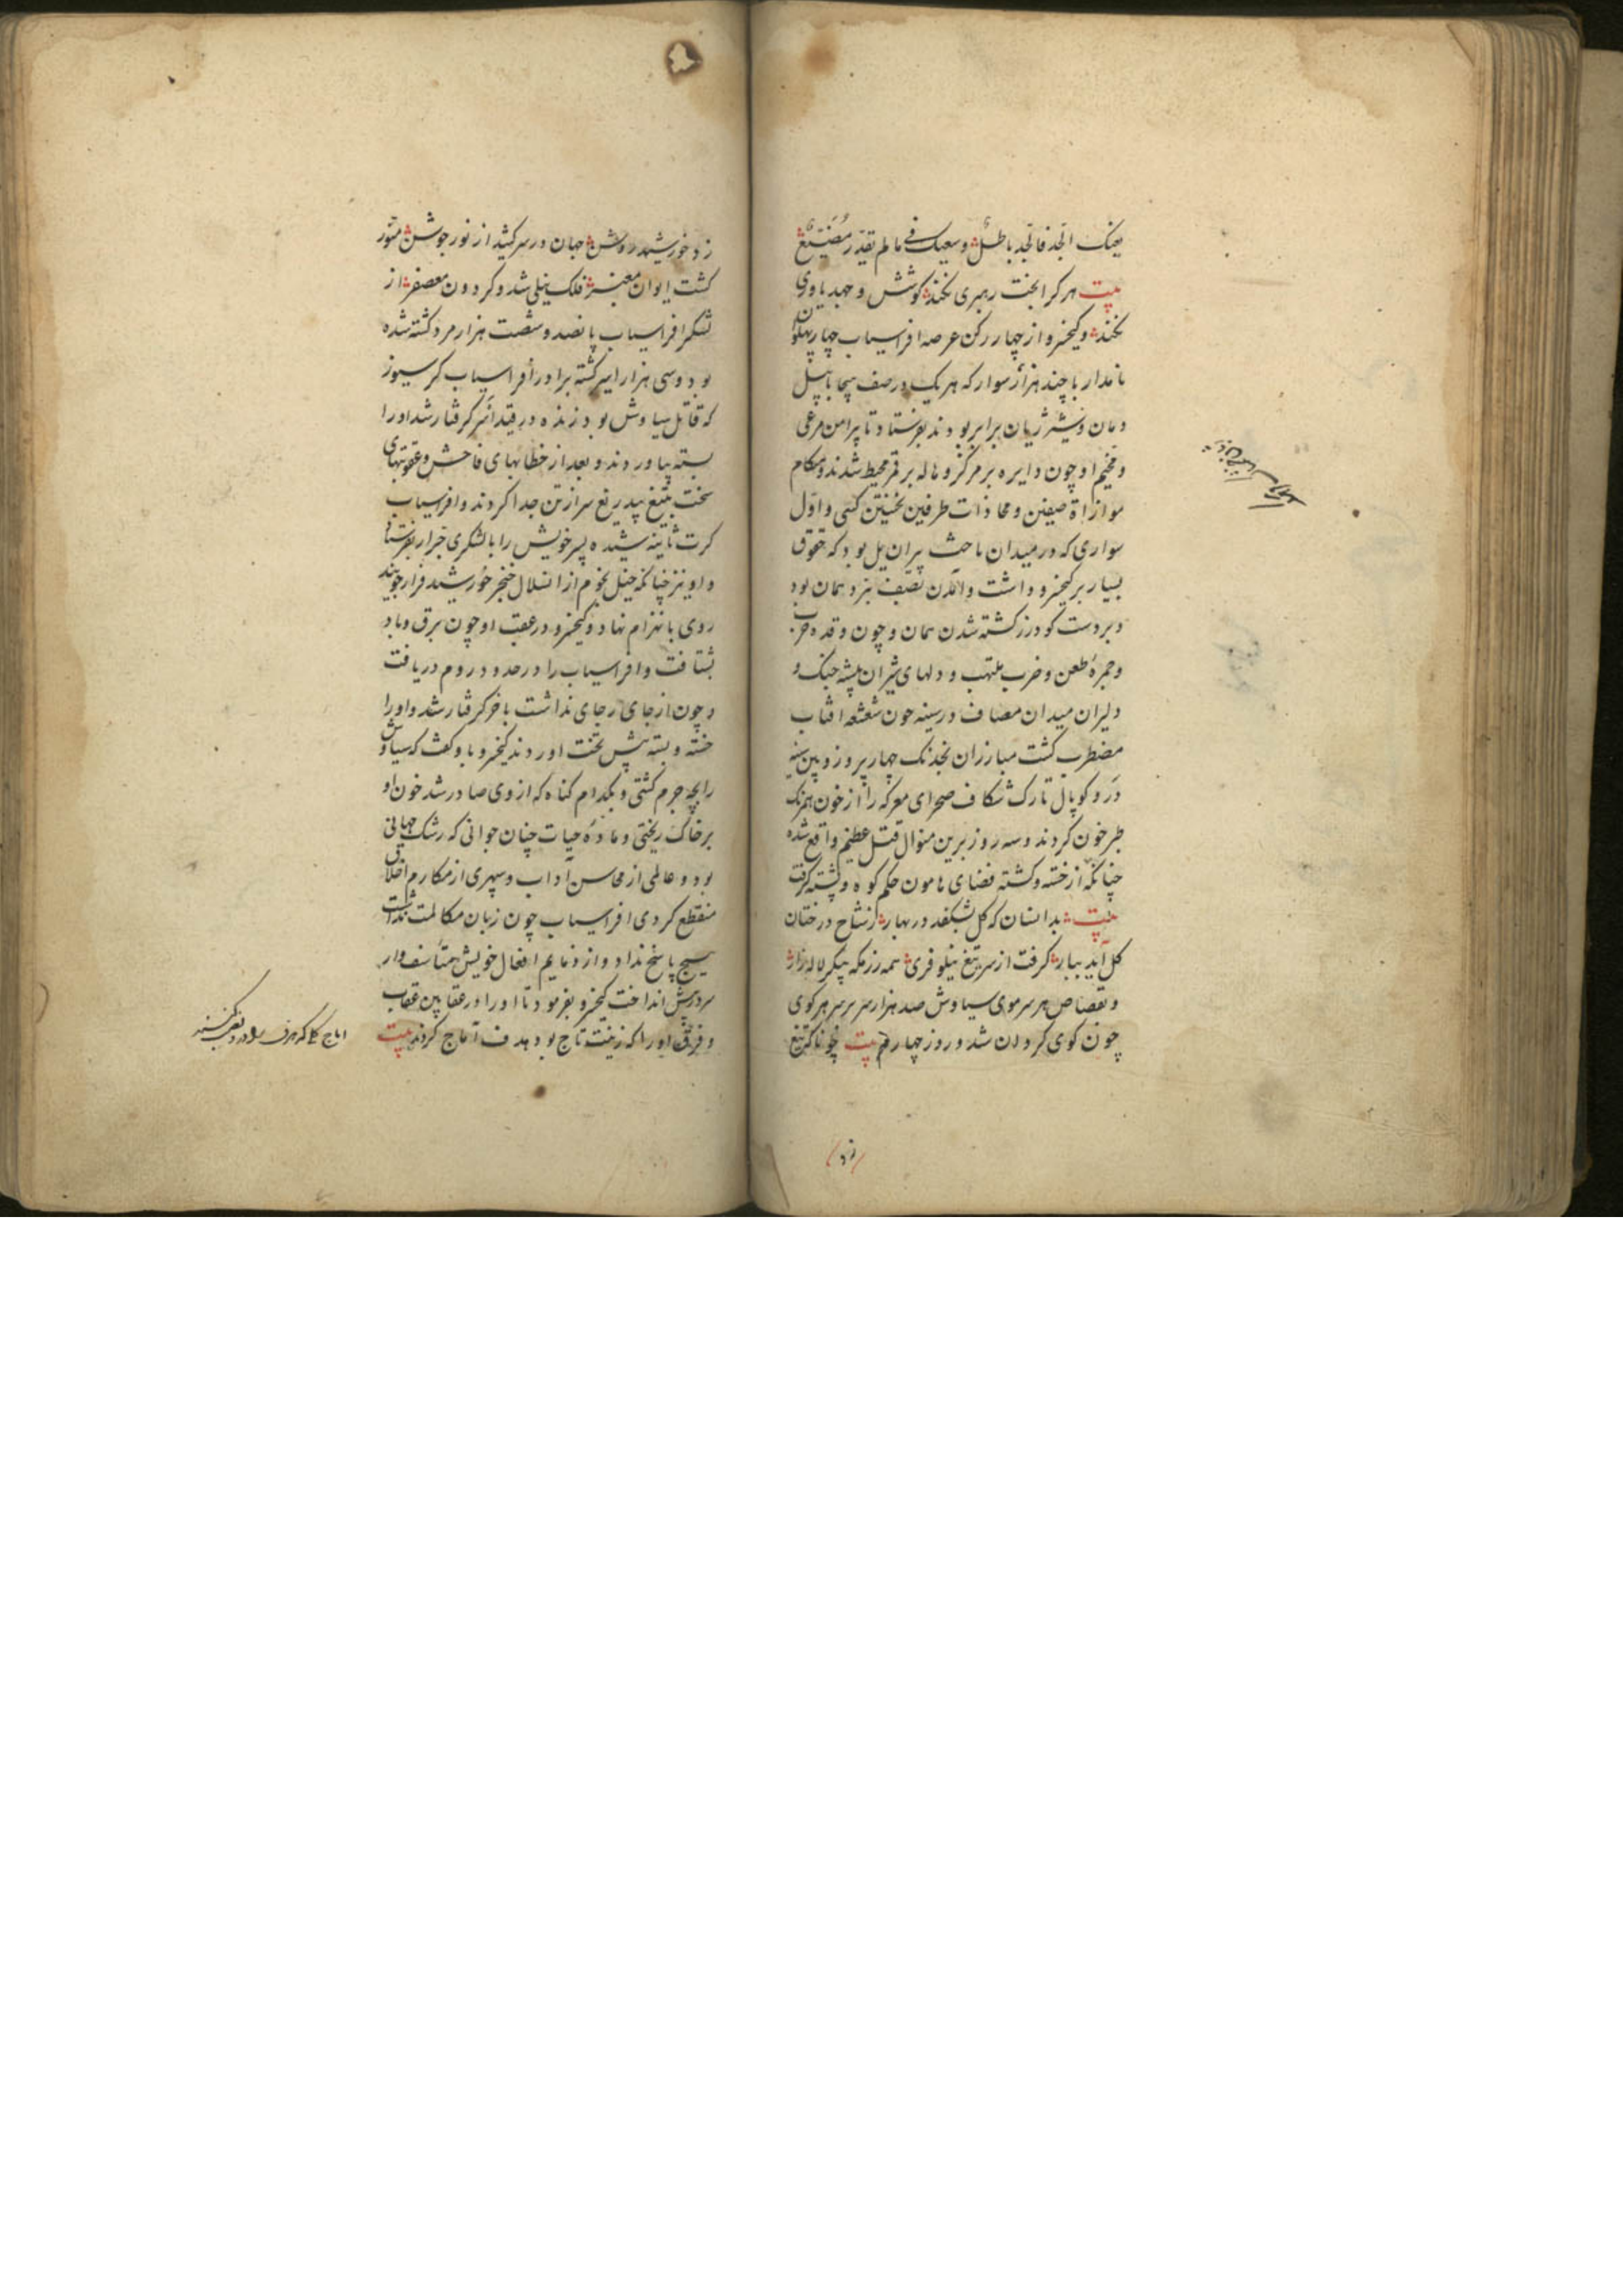 یعنک الجد فالجد باطل وسعیک فی مالم یقدر مضیع
بیت هر کرا بخت رهبری نکند کوشش و جهد یاوری
نکند وکیخسرو از چهار رکن عرصه افراسیاب چهار پهلوان
نامدار با چند هزار سوار که هر یک در صف هیجا با پیل
دمان و شیر ژیان برابر بودند بفرستاد تا پیرامن مرعی
ومخیم او چون دایره بر مرکز و هاله بر قمر محیط شدند و هنکام
موازاة صفین و محاذات طرفین نخستین کسی و اول
سواری که در میدان ماحث پیران یل بود که حقوق
بسیار بر کیخسرو داشت و آمدن بصف نبرد همان بود
وبر دست کودرز کشته شدن همان و چون وقده حرب
وجمره طعن و ضرب ملتهب و دلهای شیران بیشه جنک و
دلیران میدان مصاف در سینه چون شعشعه افتاب
مضطرب کشت مبارزان بخدنک چهار پر و زوبین سینه
در و کوپال تارک شکاف صحرای معرکه را از خون همرنک
طبرخون کردند و سه روز برین منوال قتل عظیم واقع شده
چنانکه از خسته و کشته فضای هامون حکم کوه و پشته کرفت
بیت بدانسان که کل بشکفد در بهار ز شاخ درختان
کل آید ببار کرفت از سر تیغ نیلوفری همه رزمکه پیکر لاله زار
وبقصاص هر سر موی سیاوش صد هزار سر بر سر هر کوی
چون کوی کردان شد و روز چهارم بیت چو ناکه تیغ
زد
زد خورشید روشن جهان در سر کشید از نور جوشن منور
کشت ایوان معنبر فلک نیلی شد و کردون معصفر از
لشکر افراسیاب پانصد و شصت هزار مرد کشته شده
بود و سی هزار اسیر کشته برادر افراسیاب کرسیوز
که قاتل سیاوش بود زنده در قید اسر کرفتار شد او را
بسته بیاوردند و بعد از خطابهای فاحش و عقوبتهای
سخت بتیغ بیدریغ سر از تن جدا کردند و افراسیاب
کرت ثانیه شیده پسر خویش را با لشکری جرار بفرستاد
و او نیز چنانکه خیل نجوم از انسلال خنجر خورشید فرار جویند
روی بانهزام نهاد و کیخسرو در عقب او چون برق و باد
بشتافت و افراسیاب را در حدود روم دریافت
وچون از جای رجای نداشت باخر کرفتار شد و او را
خسته و بسته پیش تخت اوردند کیخسرو با و کفت که سیاوش
را بچه جرم کشتی و بکدام کناه که از وی صادر شد خون او
بر خاک ریختی و ماده حیات چنان جوانی که رشک جهانی
بود و عالمی از محاسن آداب و سپهری از مکارم اخلاق
منقطع کردی افراسیاب چون زبان مکالمت نداشت
هیچ پاسخ نداد و از ذمایم افعال خویش متاسف وار
سر در پیش انداخت کیخسرو بفرمود تا او را در عقابین عقاب
و فرق او را که زینت تاج بود هدف آماج کردند بیت